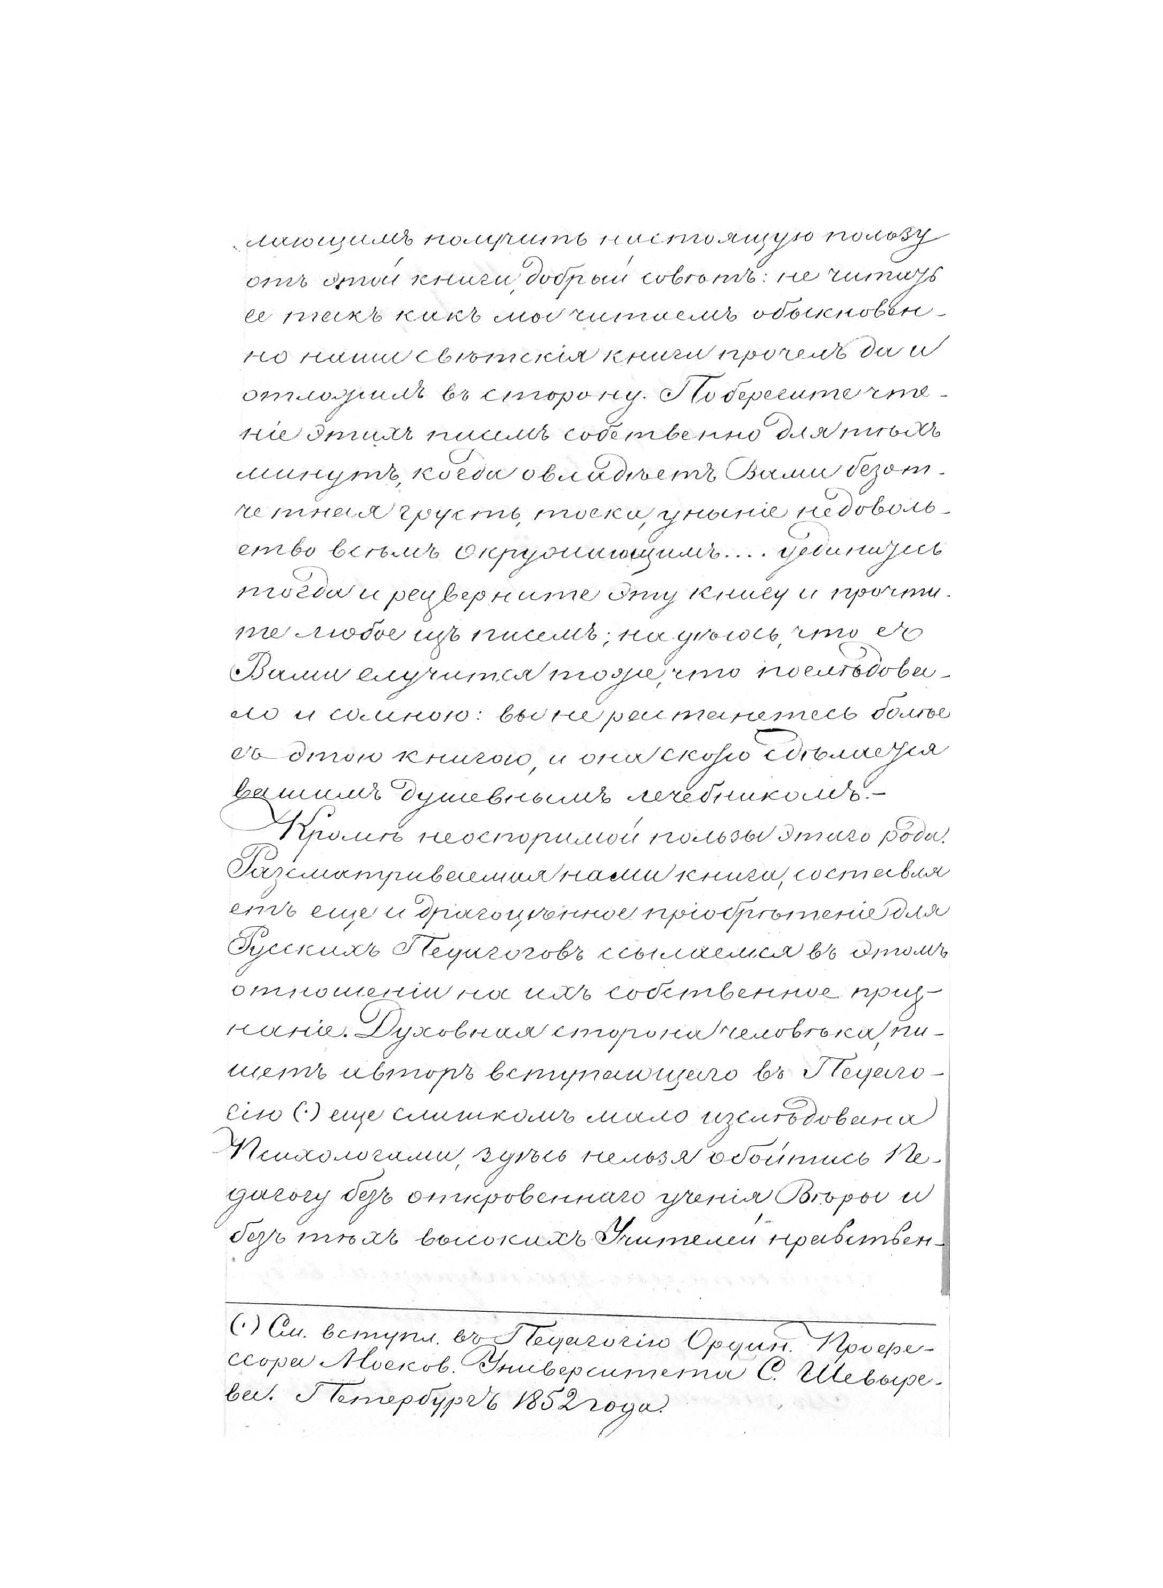 лающимъ получить настоящую пользу
отъ этой книги, добрый совѣтъ: не читать
ее такъ какъ мы читаемъ обыкновен-
но наши свѣтскія книги прочелъ да и
отложилъ въ сторону. Поберегите чте-
ніе этихъ писемъ собственно для тѣхъ
минутъ, когда овладѣетъ Вами безот-
четная грусть, тоска, уныніе недоволь-
ство всѣмъ окружающимъ.... уединитесь
тогда и разверните эту книгу и прочти-
те любое изъ писемъ; надѣюсь, что съ
Вами случится тоже, что послѣдова-
ло и сомною: вы не разстанетесь болѣе
съ этою книгою, и она скоро сдѣлается
вашимъ душевнымъ лечебникомъ.-
Кромѣ неоспоримой пользы этаго рода.
Разсматриваемая нами книга, составля
етъ еще и драгоцѣнное пріобрѣтеніе для
Русскихъ Педагоговъ ссылаемся въ этомъ
отношеніи на ихъ собственное приз-
наніе. Духовная сторона человѣка, пи-
шетъ авторъ вступающаго въ Педаго-
гію (·) еще слишкомъ мало изслѣдована
Психологами, здѣсь нельзя обойтись Пе-
дагогу безъ откровеннаго ученія Вѣры и
безъ тѣхъ высокихъ Учителей нравствен-
(·) См. вступл. въ Педагогію Ордин. Профе-
ссора Москов. Университета С. Шевыре-
ва. Петербургъ 1852 года.